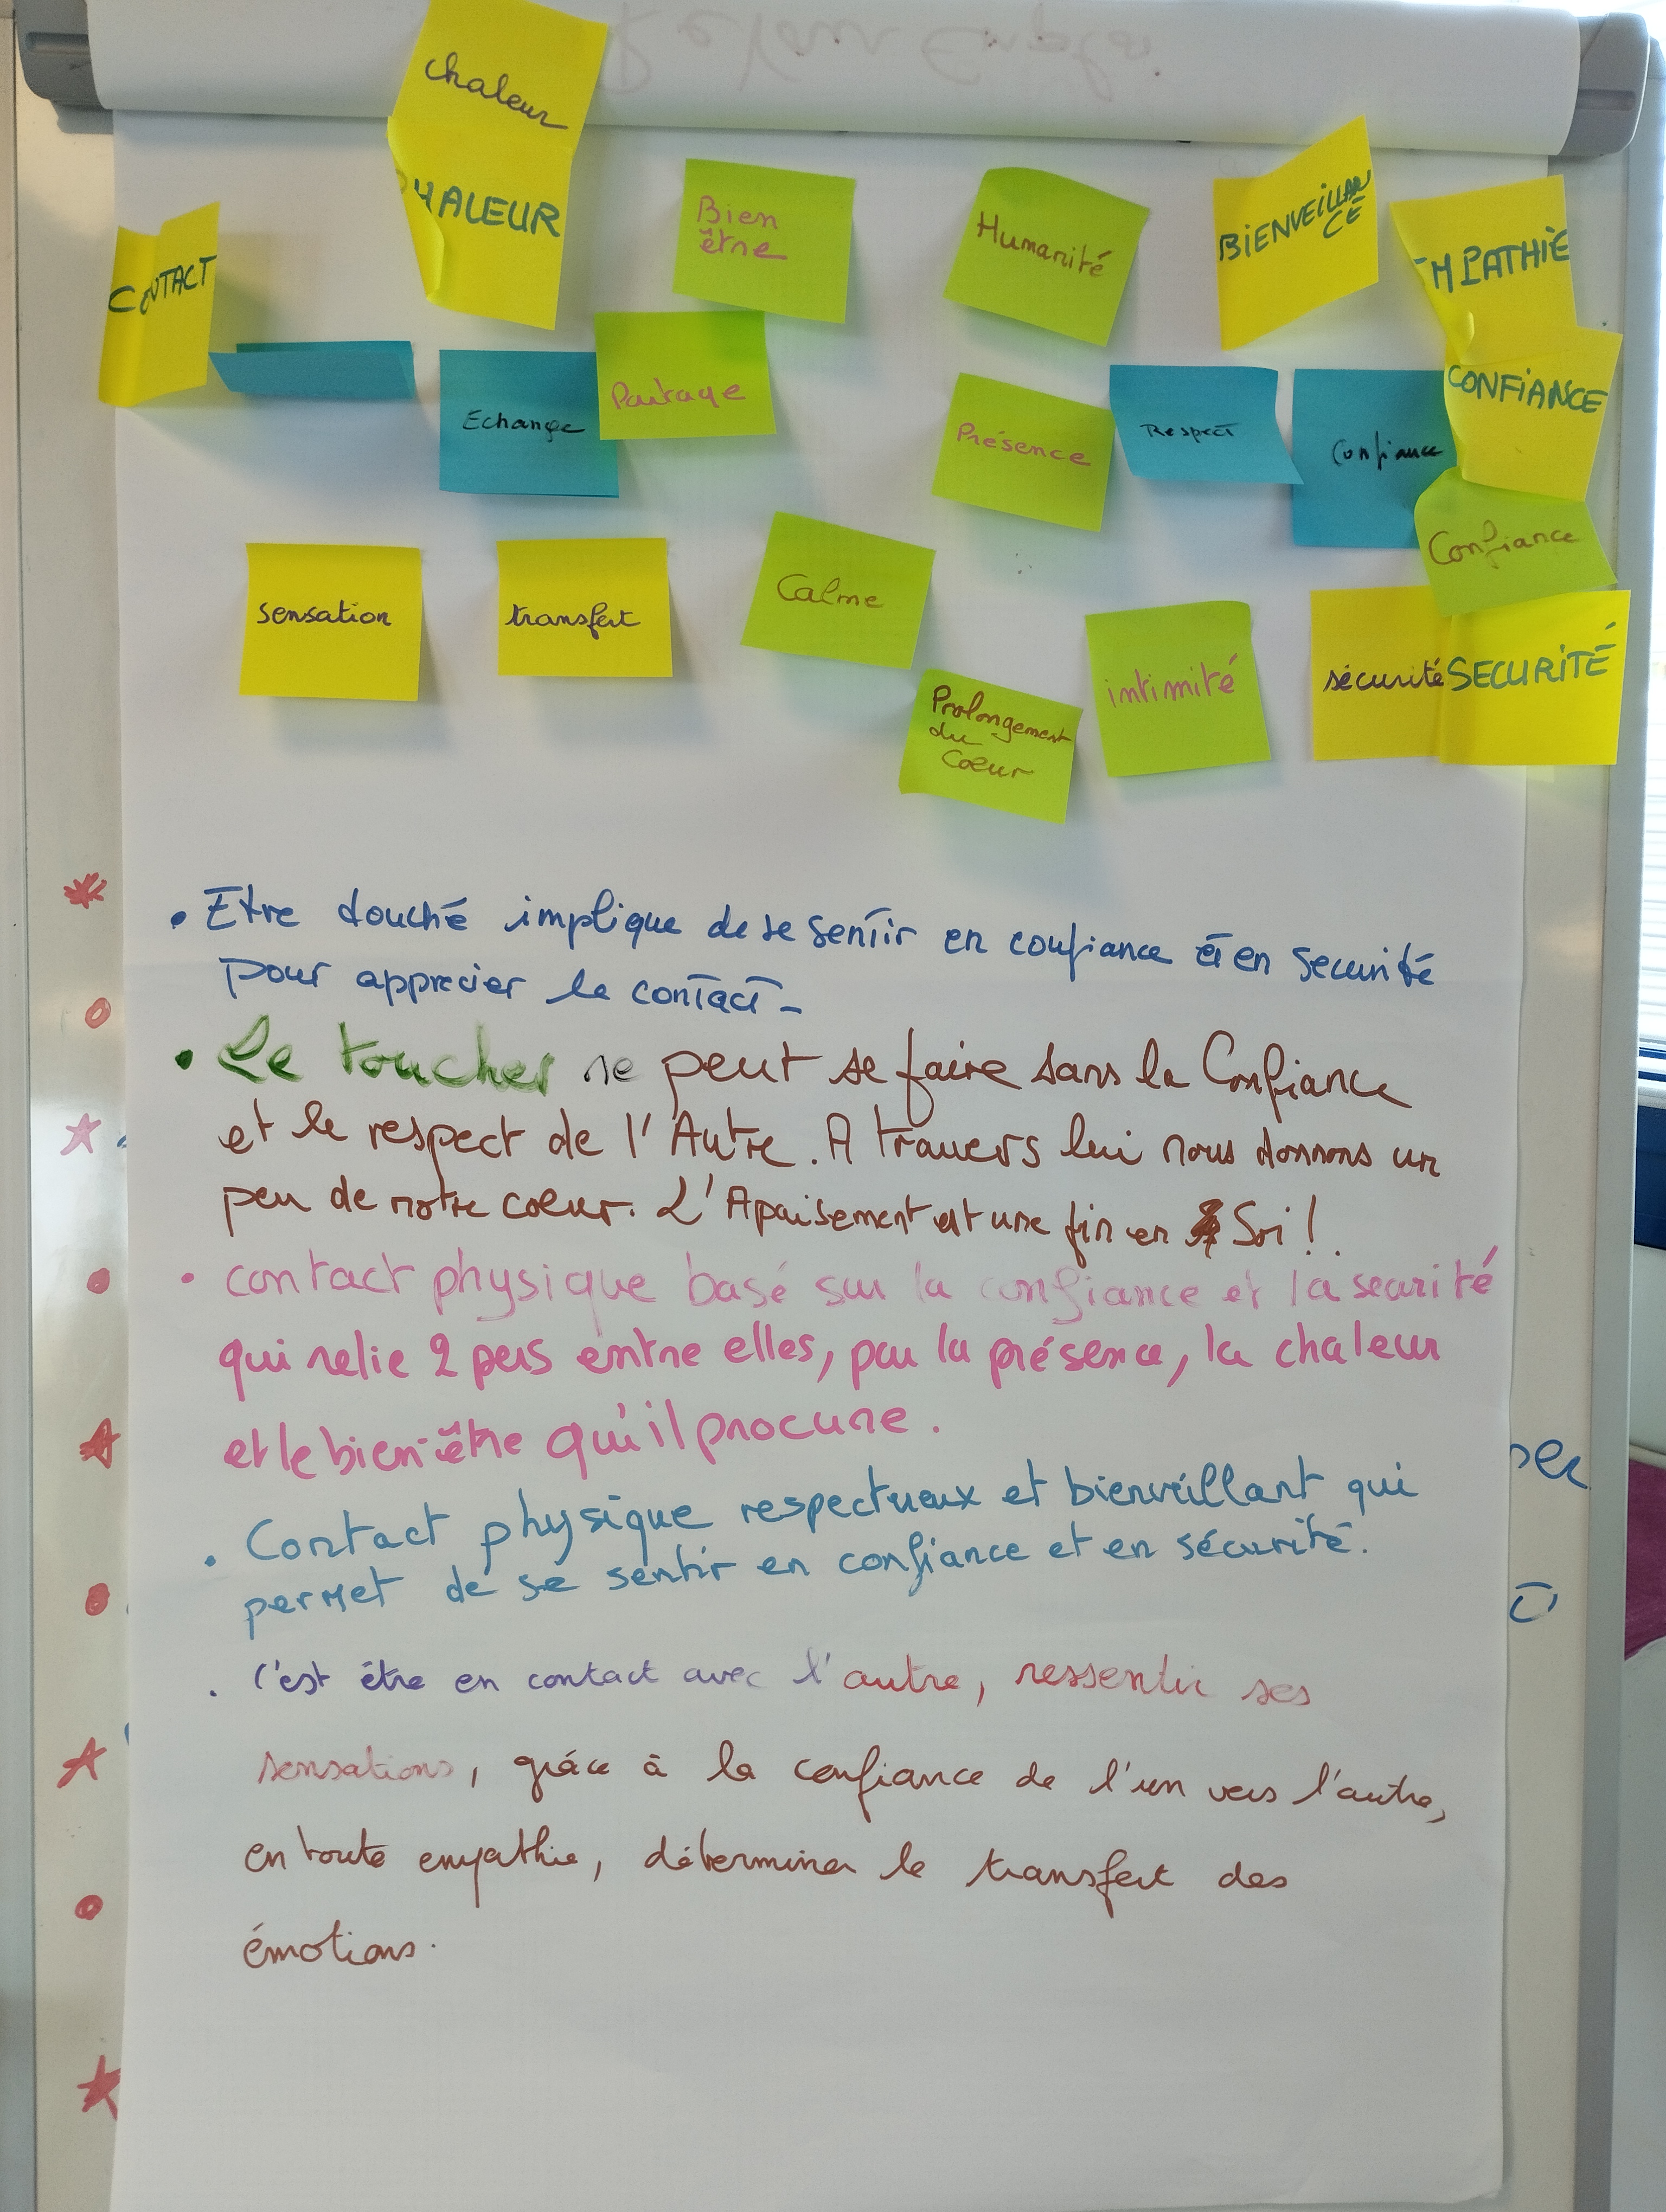 chaleur
HALEUR
Bien
être
Humanité
BIENVEILLAN
CE
MPATHIE
CONTACT
Echange
Partage
Présence
Respect
Confiance
CONFIANCE
Confiance
sensation
transfert
Calme
Prolongement
du
Cœur
intimité
sécurité
SECURITÉ
• Etre touché implique de se sentir en confiance et en securité
pour apprecier le contact -
• Le toucher ne peut se faire sans la Confiance
et le respect de l'Autre. A travers lui nous donnons un
peu de notre coeur. L'Apaisement est une fin en Soi !
• contact physique basé sur la confiance et la securité
qui relie 2 pers entre elles, par la présence, la chaleur
et le bien-être qu'il procure.
. Contact physique respectueux et bienveillant qui
permet de se sentir en confiance et en sécurité.
. C'est être en contact avec l'autre, ressentir ses
sensations, grâce à la confiance de l'un vers l'autre,
en toute empathie, déterminer le transfert des
émotions.